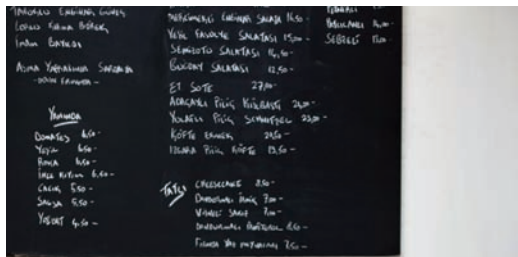 ENGİNAR
LORLU KABAK BÖREK
İMAM BAYILDI
ASMA YAPRAĞINDA SARDALYA
YANINDA
DOMATES 6,50-
YEŞİL 6,50-
ROKA 6,50-
İNCE KIYIM 6,50-
CACIK 5,50-
SALSA 5,50-
YOĞURT 4,50-
ENGİNAR SALATA 14,50-
YEŞİL FASULYE SALATASI 15,00-
SEMİZOTU SALATASI 14,50-
BUĞDAY SALATASI 12,50-
ET SOTE 27,00-
ADAÇAYLI PİLİÇ KÜLBASTI
PİLİÇ SCHNITZEL
KÖFTE EKMEK
IZGARA PİLİÇ KÖFTE
TATLI
CHEESECAKE 8,50-
DONDURMALI İRMİK 7,00-
VİŞNELİ 7,00-
DONDURMALI 8,50-
FIRINDA 7,50-
PATLICANLI 14,00-
SEBZELİ